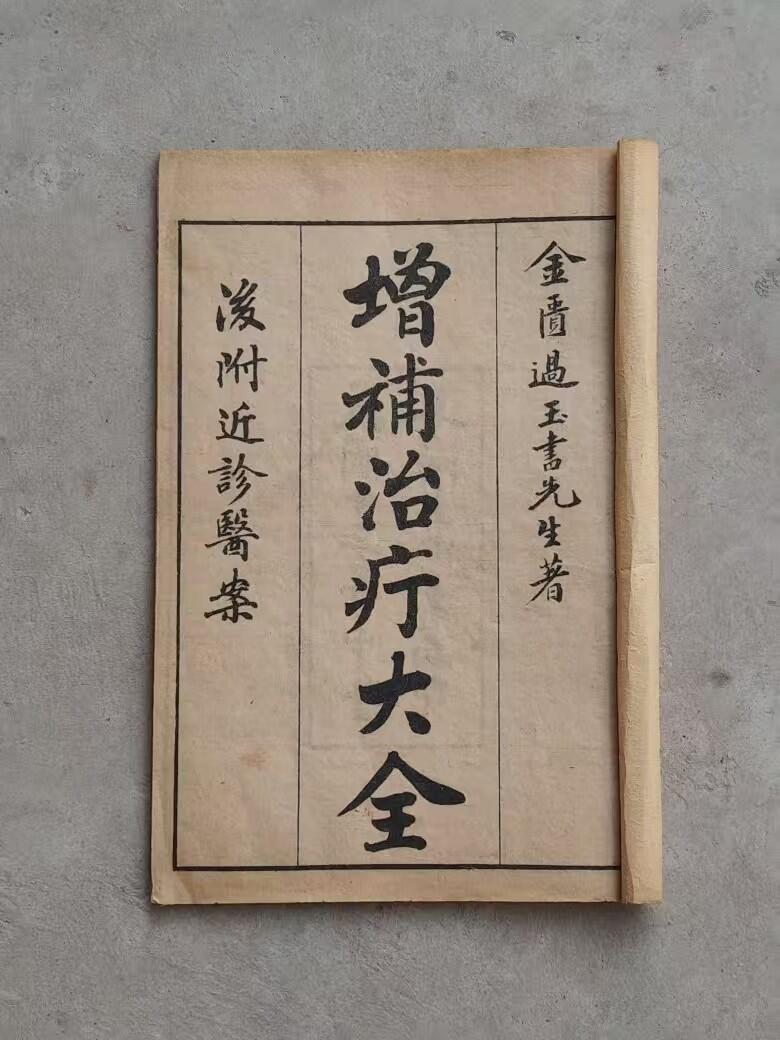 金匱過玉書先生著
增補治疔大全
後附近診醫案